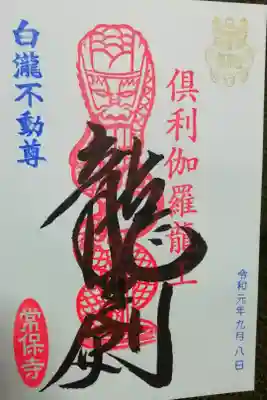 俱利伽羅龍王
龍剣
白瀧不動尊
常保寺
令和元年九月八日